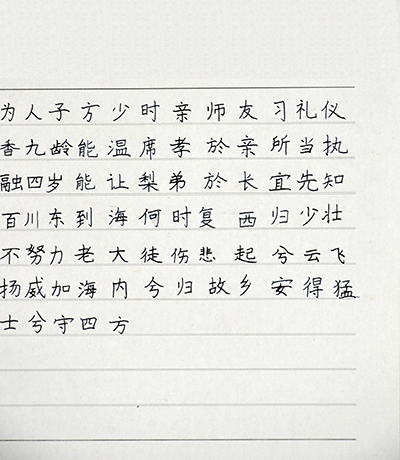 为人子方少时亲师友习礼仪
香九龄能温席孝於亲所当执
融四岁能让梨弟於长宜先知
百川东到海何时复西归少壮
不努力老大徒伤悲起兮云飞
扬威加海内兮归故乡安得猛
士兮守四方